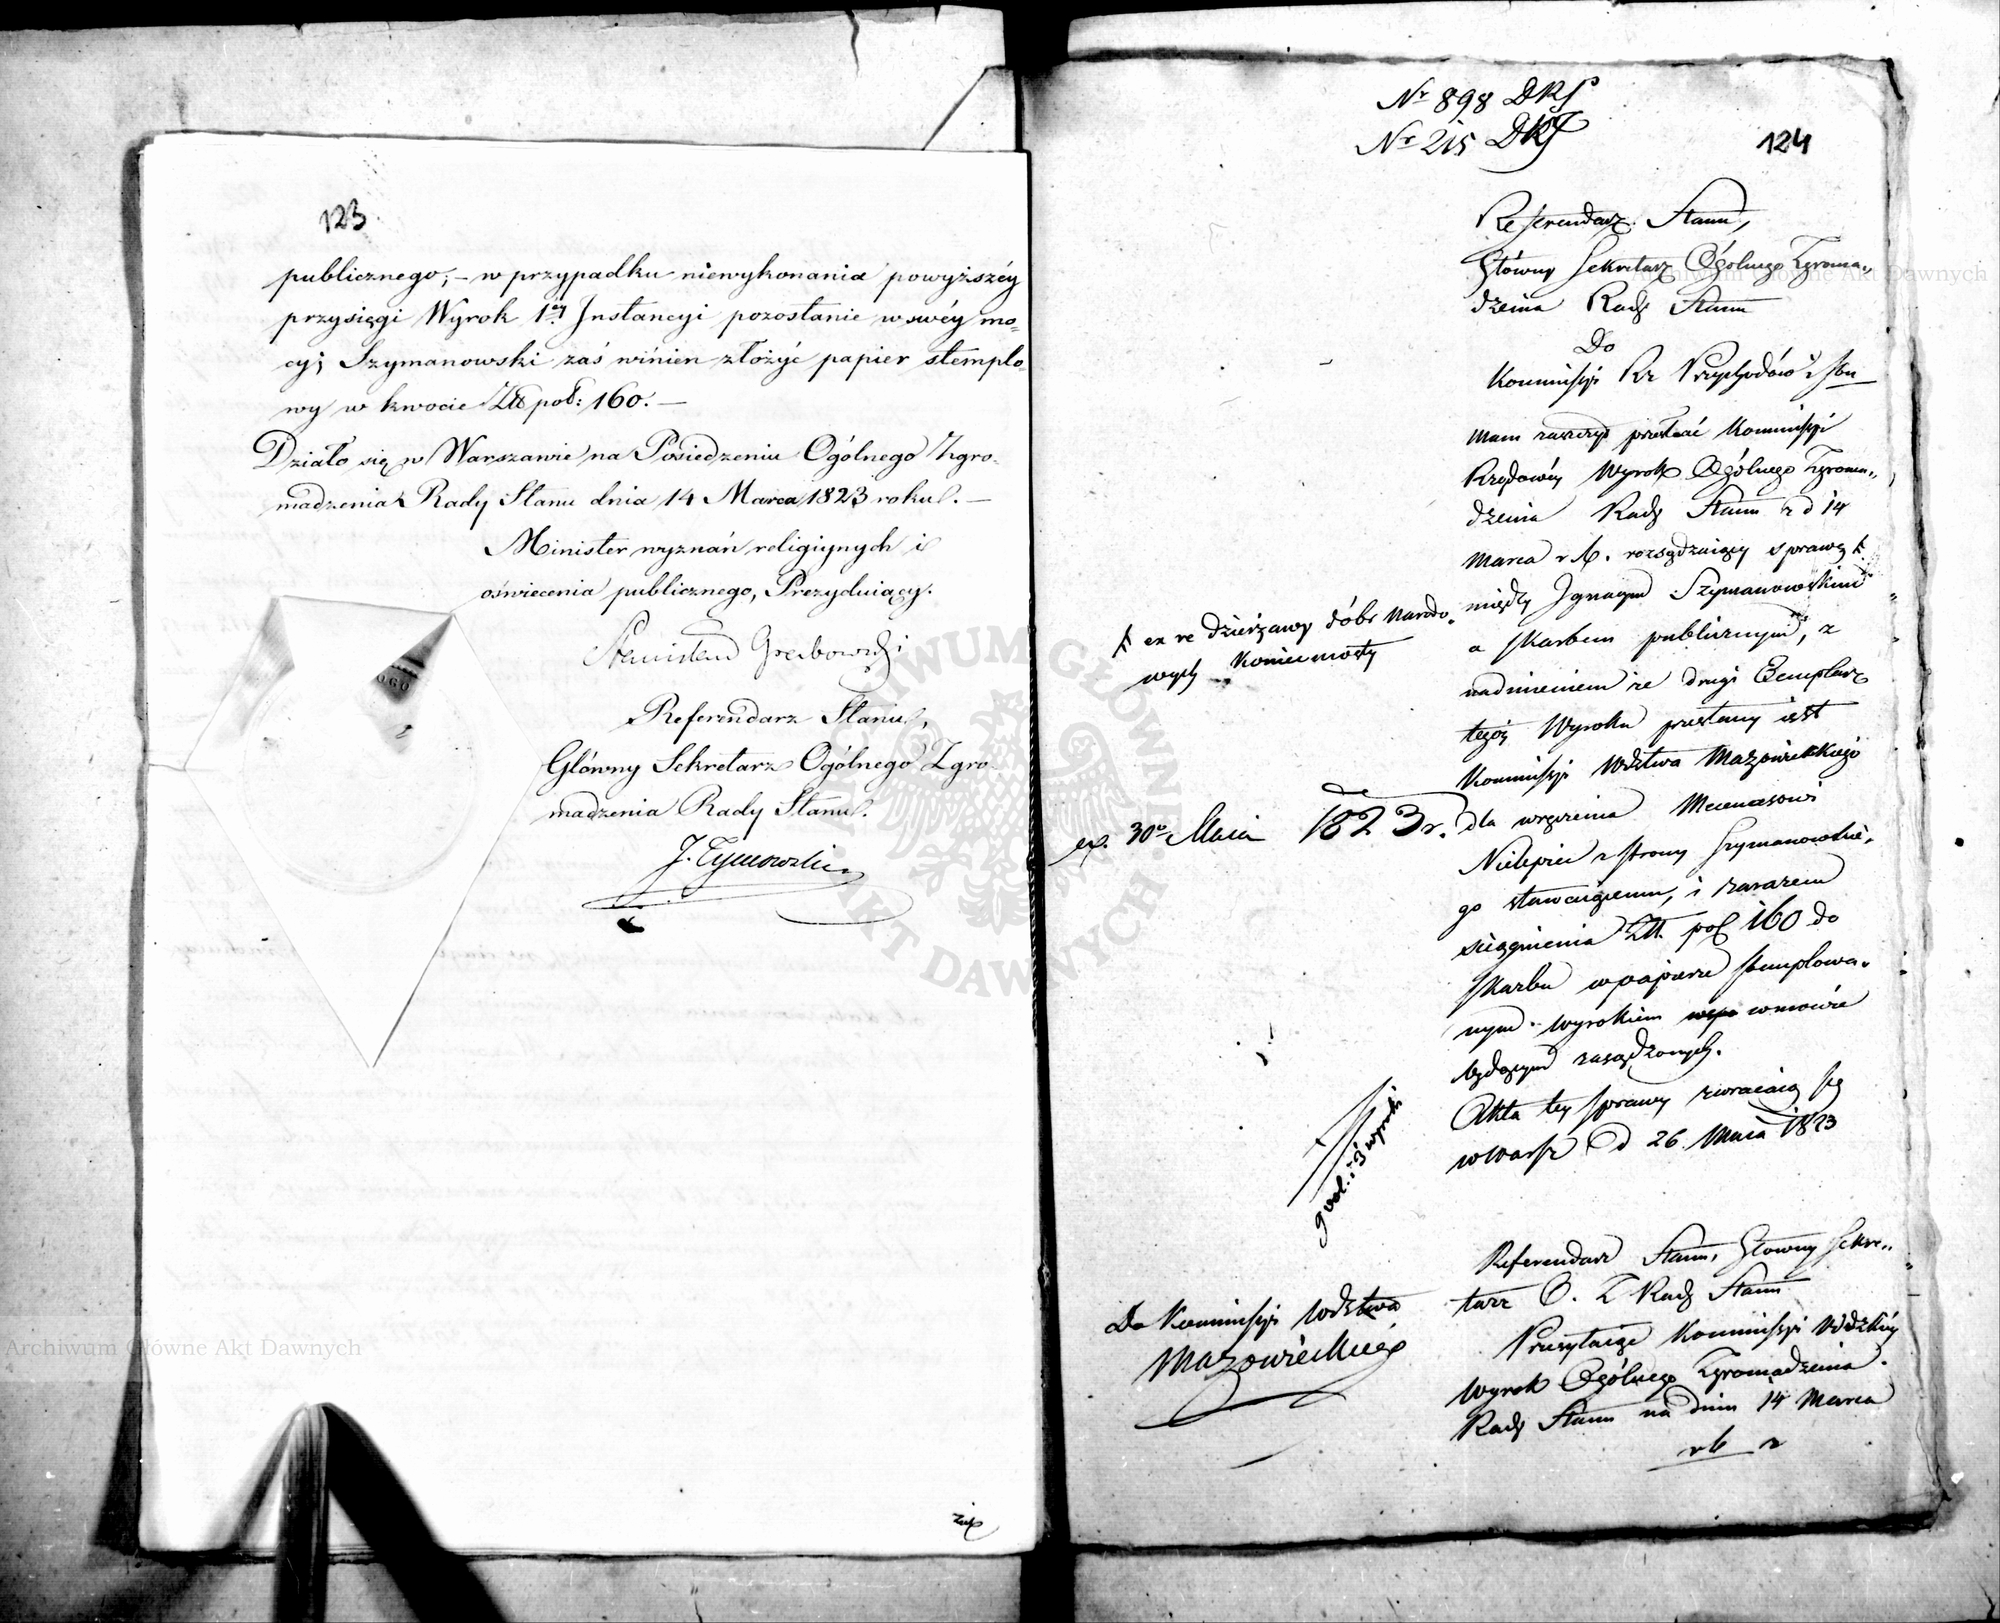 123
publicznego; – w przypadku niewykonania powyższéy
przysięgi Wyrok 1éy Instancyi pozostanie w swéy mo=
cy; Szymanowski zaś winien złożyć papier stemplo=
wy w kwocie Złł pol: 160. –
Działo się w Warszawie na Posiedzeniu Ogólnego Zgro=
madzenia Rady Stanu dnia 14 Marca 1823 roku. –
Minister wyznań religiynych i
oświecenia publicznego, Prezyduiący.
Stanisław Grabowski
Referendarz Stanu,
Główny Sekretarz Ogólnego Zgro
madzenia Rady Stanu.
J. Tymowski
OGO
Nr 898 DKP
Nr 215 DKJ
124
Referendarz Stanu,
Główny Sekretarz Ogólnego Zgroma=
dzenia Rady Stanu
Do
Kommissyi Rz Przychodów i Sku
Mam zaszczyt przesłać Kommissyi
Rządowéy Wyrok Ogólnego Zgroma=
dzenia Rady Stanu z d 14
Marca r b. rozsądzaiący sprawę
między Ignacym Szymanowskim
a skarbem publicznym, z
nadmieniem że drugi Exemplarz
tegóż Wyroku przesłany iest
Kommissyi Wdztwa Mazowieckiego
dla wręczenia Mecenasowi
z strony Szymanowskie=
go stawaiącemu, i zarazem
ściągnienia Złł. pol 160 do
skarbu w papierze stemplowa=
nym wyrokiem w mowie
będącym zasądzonych.
Akta téy sprawy zwracaią się
w Warsz d 26 Maia 1823
ex re dzierżawy dóbr Narodo=
wych Koniecmosty
ex. 30o Maia 1823 r.
9 vol. i 3 wyroki
Do Kommissyi Wdztwa
Mazowieckiego
Referendarz Stanu, Główny Sekre=
tarz O. Z Rady Stanu
Przesyłaiąc Kommissyi Wdzkiéy
Wyrok Ogólnego Zgromadzenia
Rady Stanu na dniu 14 Marca
r b z
Archiwum Główne Akt Dawnych
Archiwum Główne Akt Dawnych
ARCHIWUM GŁÓWNE AKT DAWNYCH